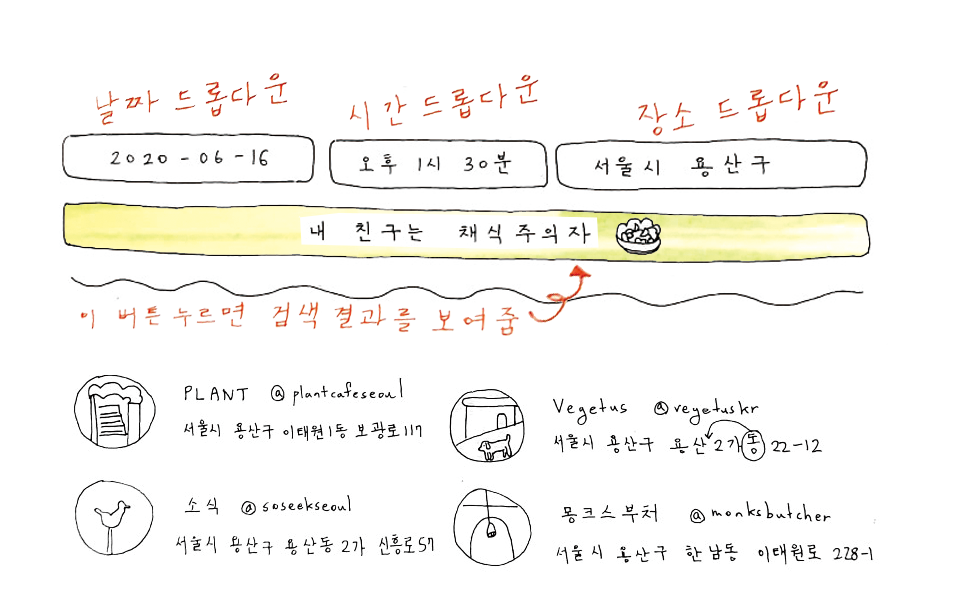 날짜 드롭다운
시간 드롭다운
장소 드롭다운
2020-06-16
오후 1시 30분
서울시 용산구
내 친구는 채식주의자
이 버튼 누르면 검색결과를 보여줌
PLANT @plantcafeseoul
서울시 용산구 이태원1동 보광로117
Vegetus @vegetuskr
서울시 용산구 용산2가동 22-12
소식 @soseekseoul
서울시 용산구 용산동2가 신흥로57
몽크스부처 @monksbutcher
서울시 용산구 한남동 이태원로 228-1